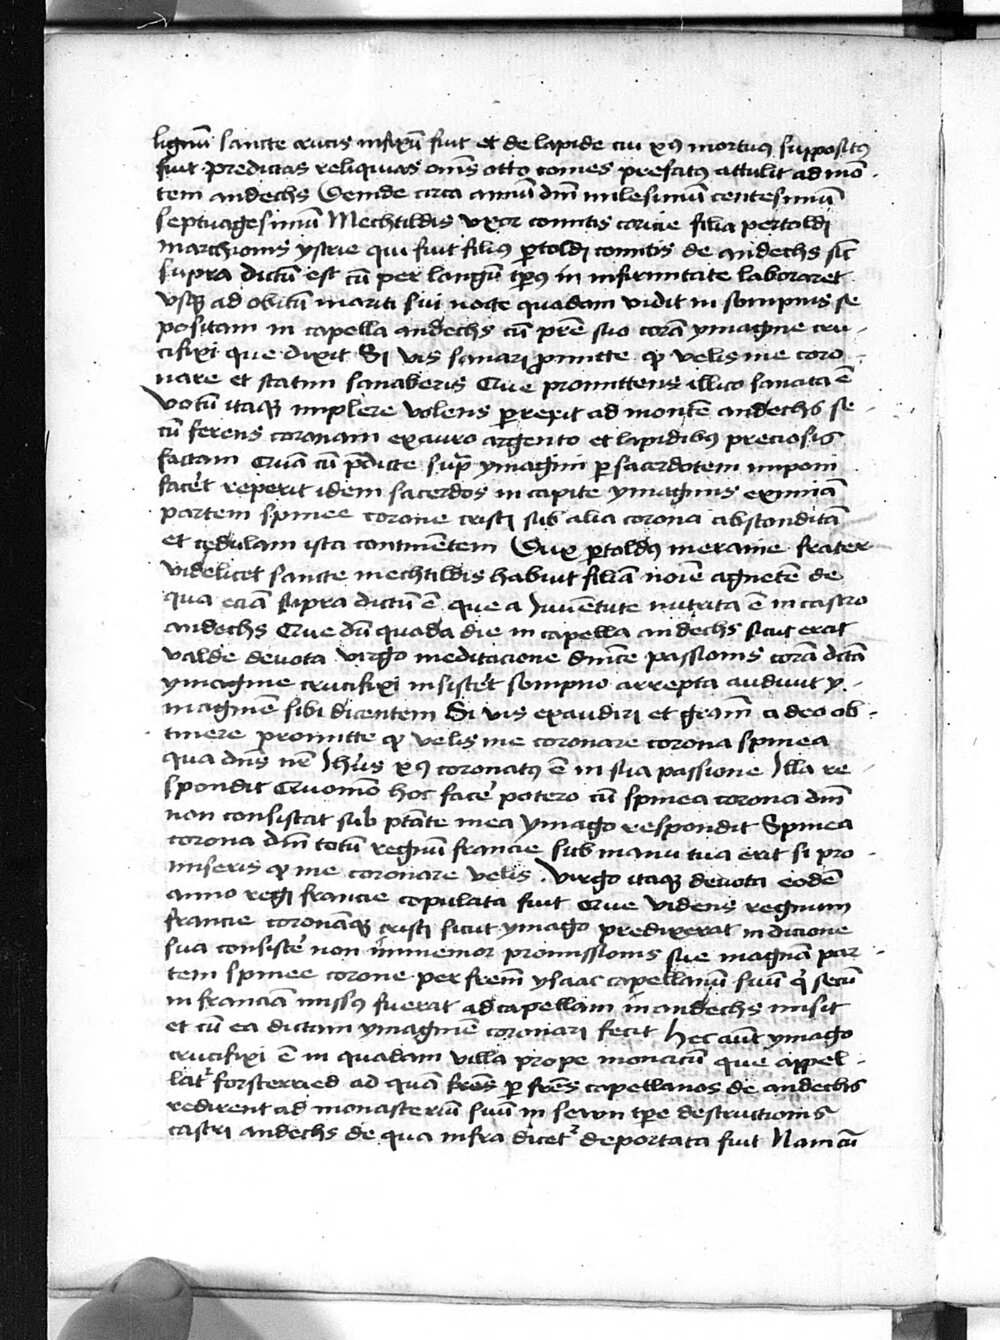 lignū sancte crucis infixū fuit et de lapide cui xp̄s mortuus supposit9
fuit . predictas reliquias om̄s otto comes prefatus attulit ad mō
tem andechs Deinde circa annū dm̄ milesimū centesimū
septuagesimū Mechtildis vxor comitis coricie filia pertoldi
marchionis ystrie qui fuit fili9 p̱toldi comitis de andechs sic̄
supra dictū est cū per longū tp̄9 in infirmitate laboraret
vsqꝫ ad obitū mariti sui nocte quadam vidit in sompnis se
positam in capella andechs cū pr̄e suo corā ymagine cru
cifixi que dixit Si vis sanari promitte qꝫ velis me coro
nare et statim sanaberis Que promittens illico sanata ē
Votū itaqꝫ implere volens p̱rexit ad montē andechs se
cū ferens coronam ex auro argento et lapidibus preciosis
factam Quā cū p̄dicte sup̄ ymagini p̱ sacerdotem imponi
facēt reperit idem sacerdos in capite ymaginis eximiā
partem spinee corone cristi sub alia corona absconditā
et cedulam ista continētem Dux p̱told9 meranie frater
videlicet sancte mechtildis habuit filiā noīe agnetē de
qua eciā supra dictū ē que a Juuentute nutrita ē in castro
andechs Que dū quada die in capella andechs sicut erat
valde deuota virgo meditacione dn̄ice passionis corā dicta
ymagine crucifixi insistēt sompno arrepta audiuit y
maginē sibi dicentem Si vis exaudiri et grām a deo ob
tinere promitte qꝫ velis me coronare corona spinea
qua dn̄s nr̄ Jh̄us xp̄9 coronat9 ē in sua passione Illa re
spondit Quomō hoc facē potero cū spinea corona dn̄i
non consistat sub ptāte mea ymago respondit Spinea
corona dn̄i totū regnū francie sub manu tua erit si pro
miseris qꝫ me coronare velis . Virgo itaqꝫ deuota eodē
anno regi francie copulata fuit Que videns regnum
francie coronāqꝫ cristi sicut ymago predixerat in dicione
sua consistē non immemor promissionis sue magnā par
tem spinee corone per frēm ysaac capellanū suū qͥ secū
in franciā miss9 fuerat ad capellam in andechs misit
et cū ea dictam ymaginē coronari fecit Hec aūt ymago
crucifixi ē in quadam villa prope monacū que appel
lat᷑ forsterried ad quā fr̄es p̱ fr̄es capellanos de andechs
redirent ad monasteriū suū in sewn tp̄e destructionis
castri andechs de qua infra dicet᷑ deportata fuit Nam cū